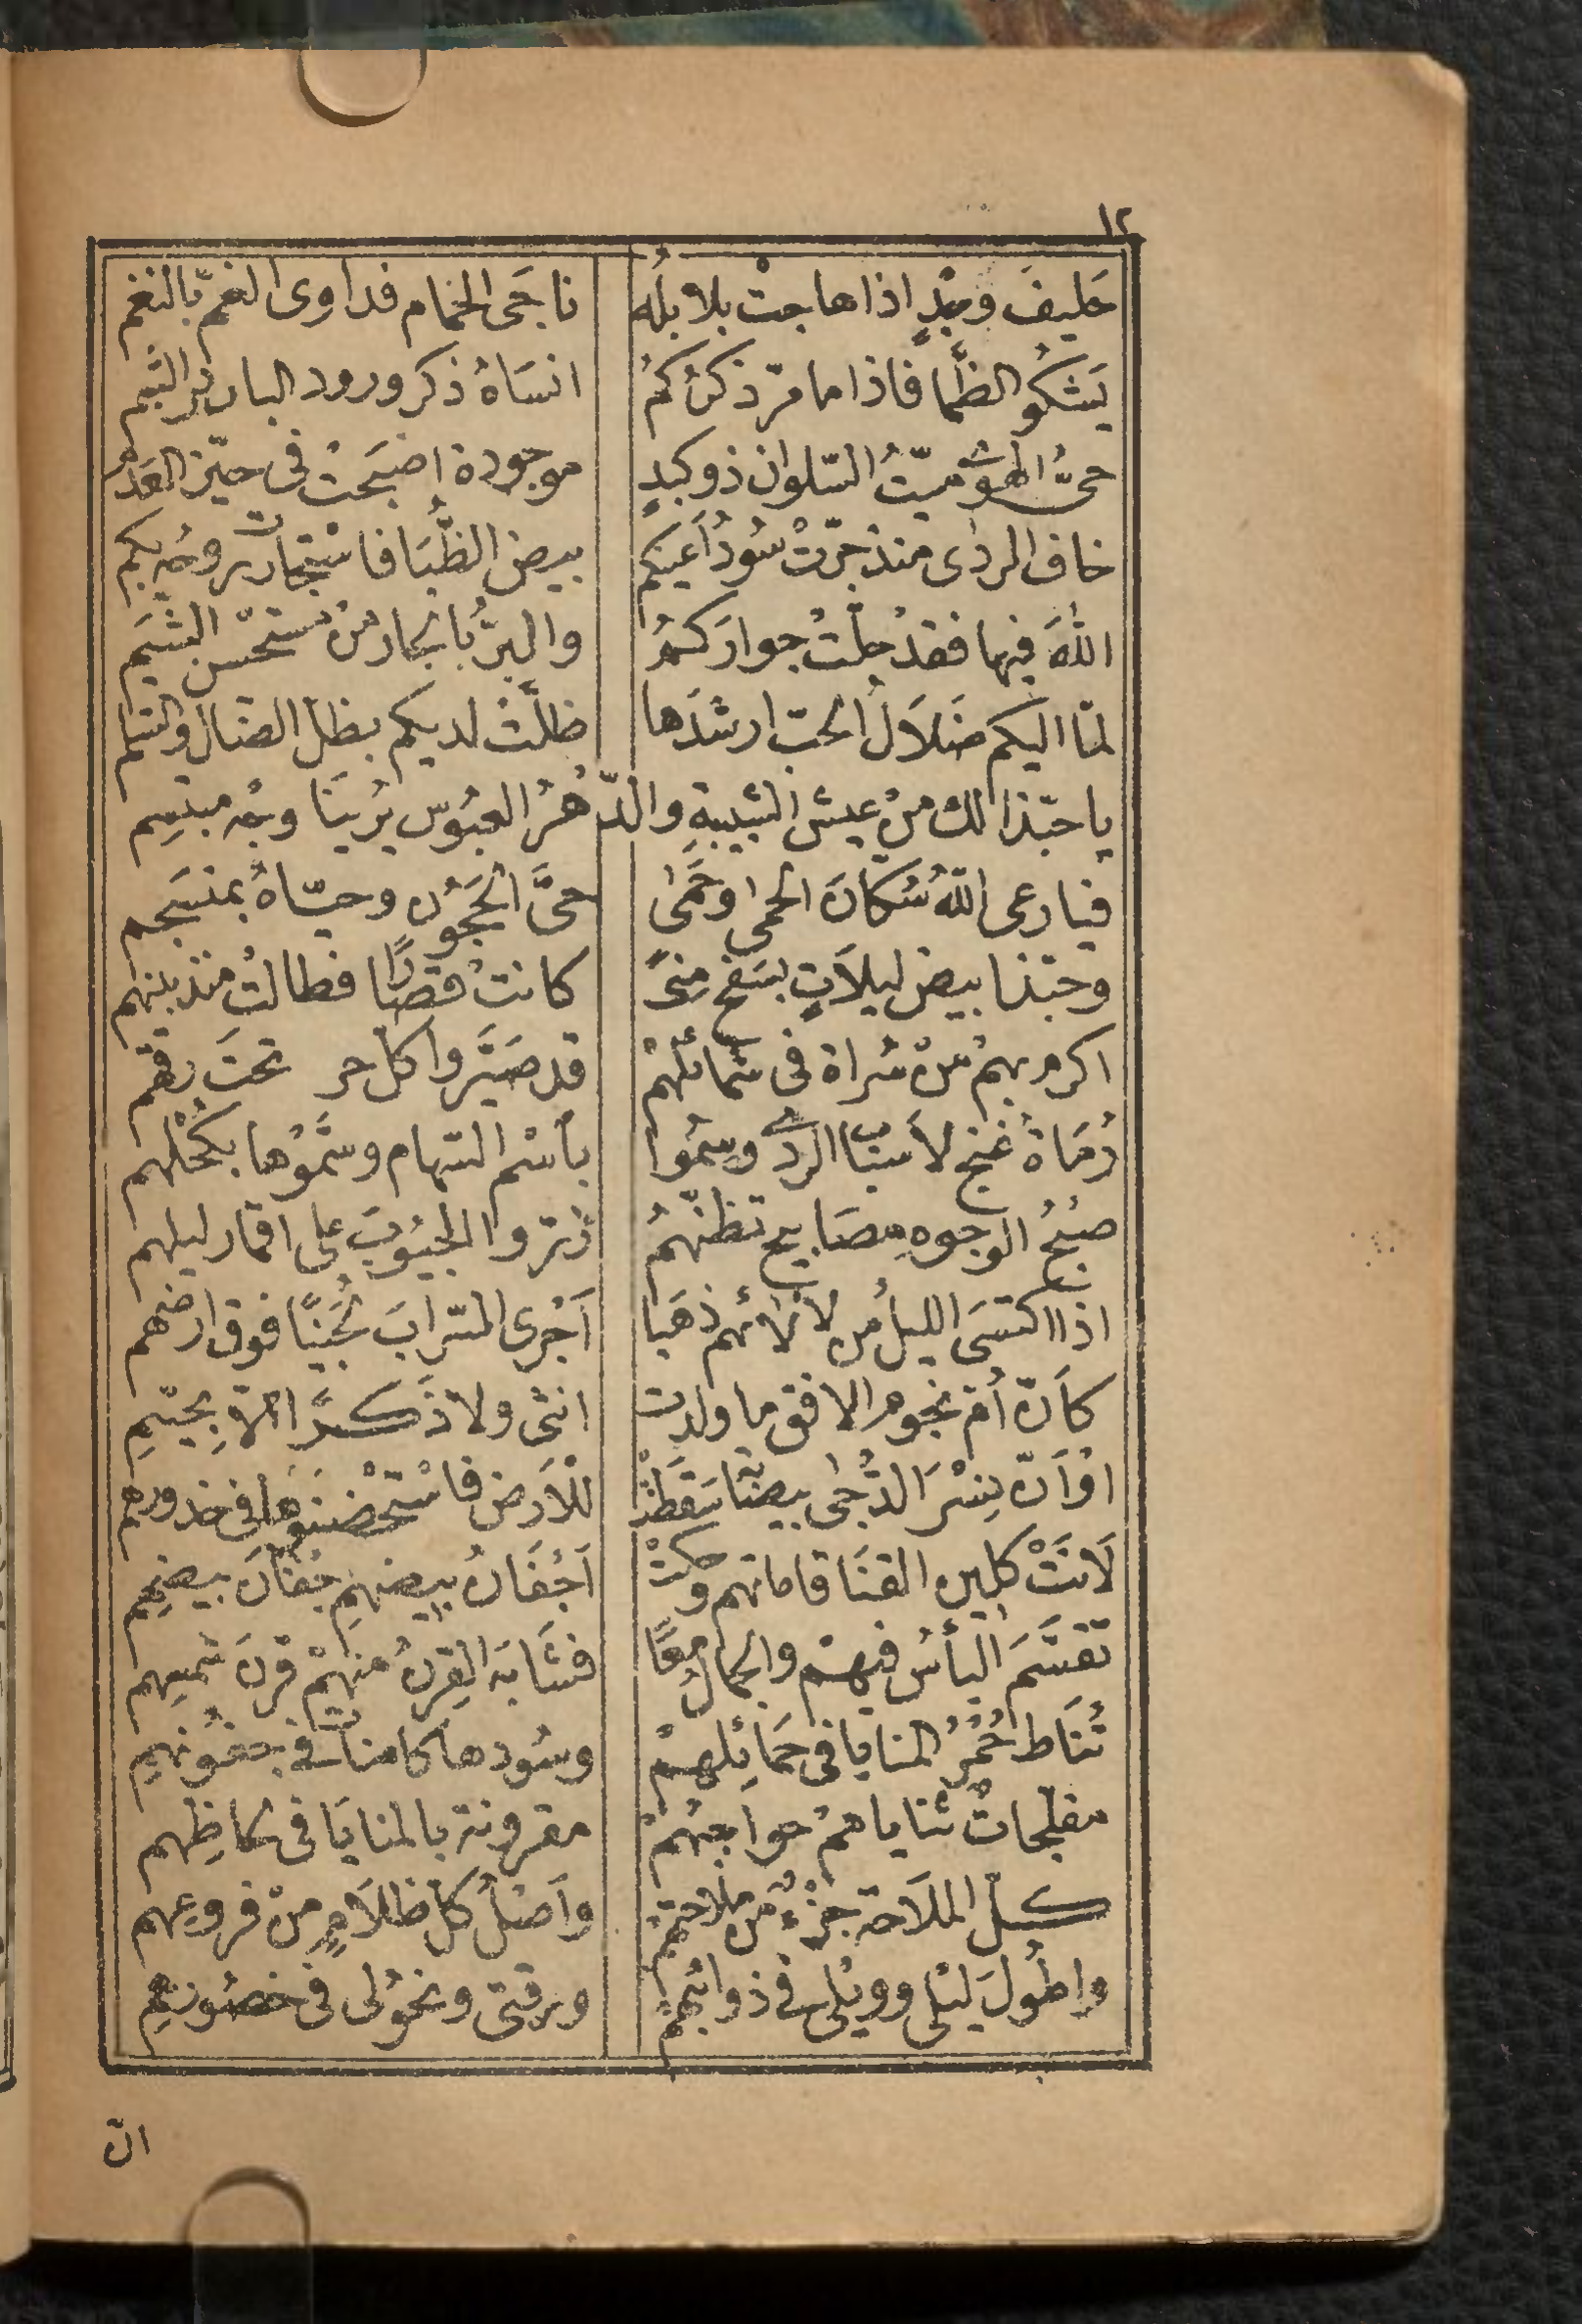 ١٢
حَليفَ وجْدٍ اذا هاجتْ بلابلُه ناجَى الحمام فداوى الغمّ بالنغم
يَشكُو الظَّما فاذا ما مرّ ذكركُمُ انسَاهُ ذكر ورود البان والعلم
حىُّ الهوى ميّتُ السّلوان ذو كبدٍ موجودة اصبَحتْ فى حيّز العَدَم
خاف الردى منذ جرّتْ سُودُ أعينكم بيض الظُّبَا فاسْتجارت روحُه بكم
اللهَ فيها فقدْ حلّتْ جوارَكمُ والبرُّ بالجار منْ مستحسن الشيَم
لمّا اليكم ضَلاَلُ الحبّ ارشدَها ظلَّتْ لديكم بظل الضال والسلم
يا حبّذا لك منْ عيش الشبيبةِ والدّهْرُ العبُوس يُرينَا وجْه مبتسِم
فيا رعى اللهُ سُكّانَ الحمى وحَمى حىَّ الحَجُون وحيّاهُ بمنسَجم
وحبّذا بيض ليلاَتٍ بسَفح مِنىً كانتْ قصَارًا فطالتْ منذ بينهم
اكرم بهمْ منْ سُراة فى شمائلهمْ قد صَيَّروا كل حر تحتَ رقهم
رُمَاة غنج لاَسبَاب الردى وسمُوا باسْم السّهام وسَمَّوْها بكحْلهم
صبْحُ الوجوهِ مصَابيح تظنّهمُ زرّوا الجيُوبَ على اقمار ليلهم
اذا اكتسَى الليلُ من لأْلائهم ذهَبا اَجْرى السّرابَ لُجَينًا فوق ارضهم
كأنّ أم نجوم الافق ما ولدت انثى ولا ذَكَرًا الاّ بحيّهِمِ
اوْ أنّ نِسْرَ الدُّجى بيضَاتُه سَقَطَتْ للأرض فاسْتحْضنوها فى خدورهم
لاَنَتْ كلين القنَا قاماتهم وحكتْ اَجْفَانُ بيضهِمِ جفنَانَ بيضِهِم
تقسَّمَ البأسُ فيهمْ والجمالُ معًا فشَابَهَ القرنُ منهمْ قرنَ شمسِهِم
تُنَاط حُمْرُ المنايا فى حَمَائِلهمْ وسُودها كامناتٌ فى جفُونهِمِ
مفلجاتٌ ثناياهمْ حواجبهُمْ مقرونة بالمنايَا فى لحاظِهِم
كلّ الملاَحة جزْءٌ من ملاحتهمْ واَصْلُ كل ظلاَمٍ منْ فروعهم
واطُولَ ليْلى وويْلى فى ذوائبهمْ ورقتى ونحُولى فى خصُورهِمِ
انّ